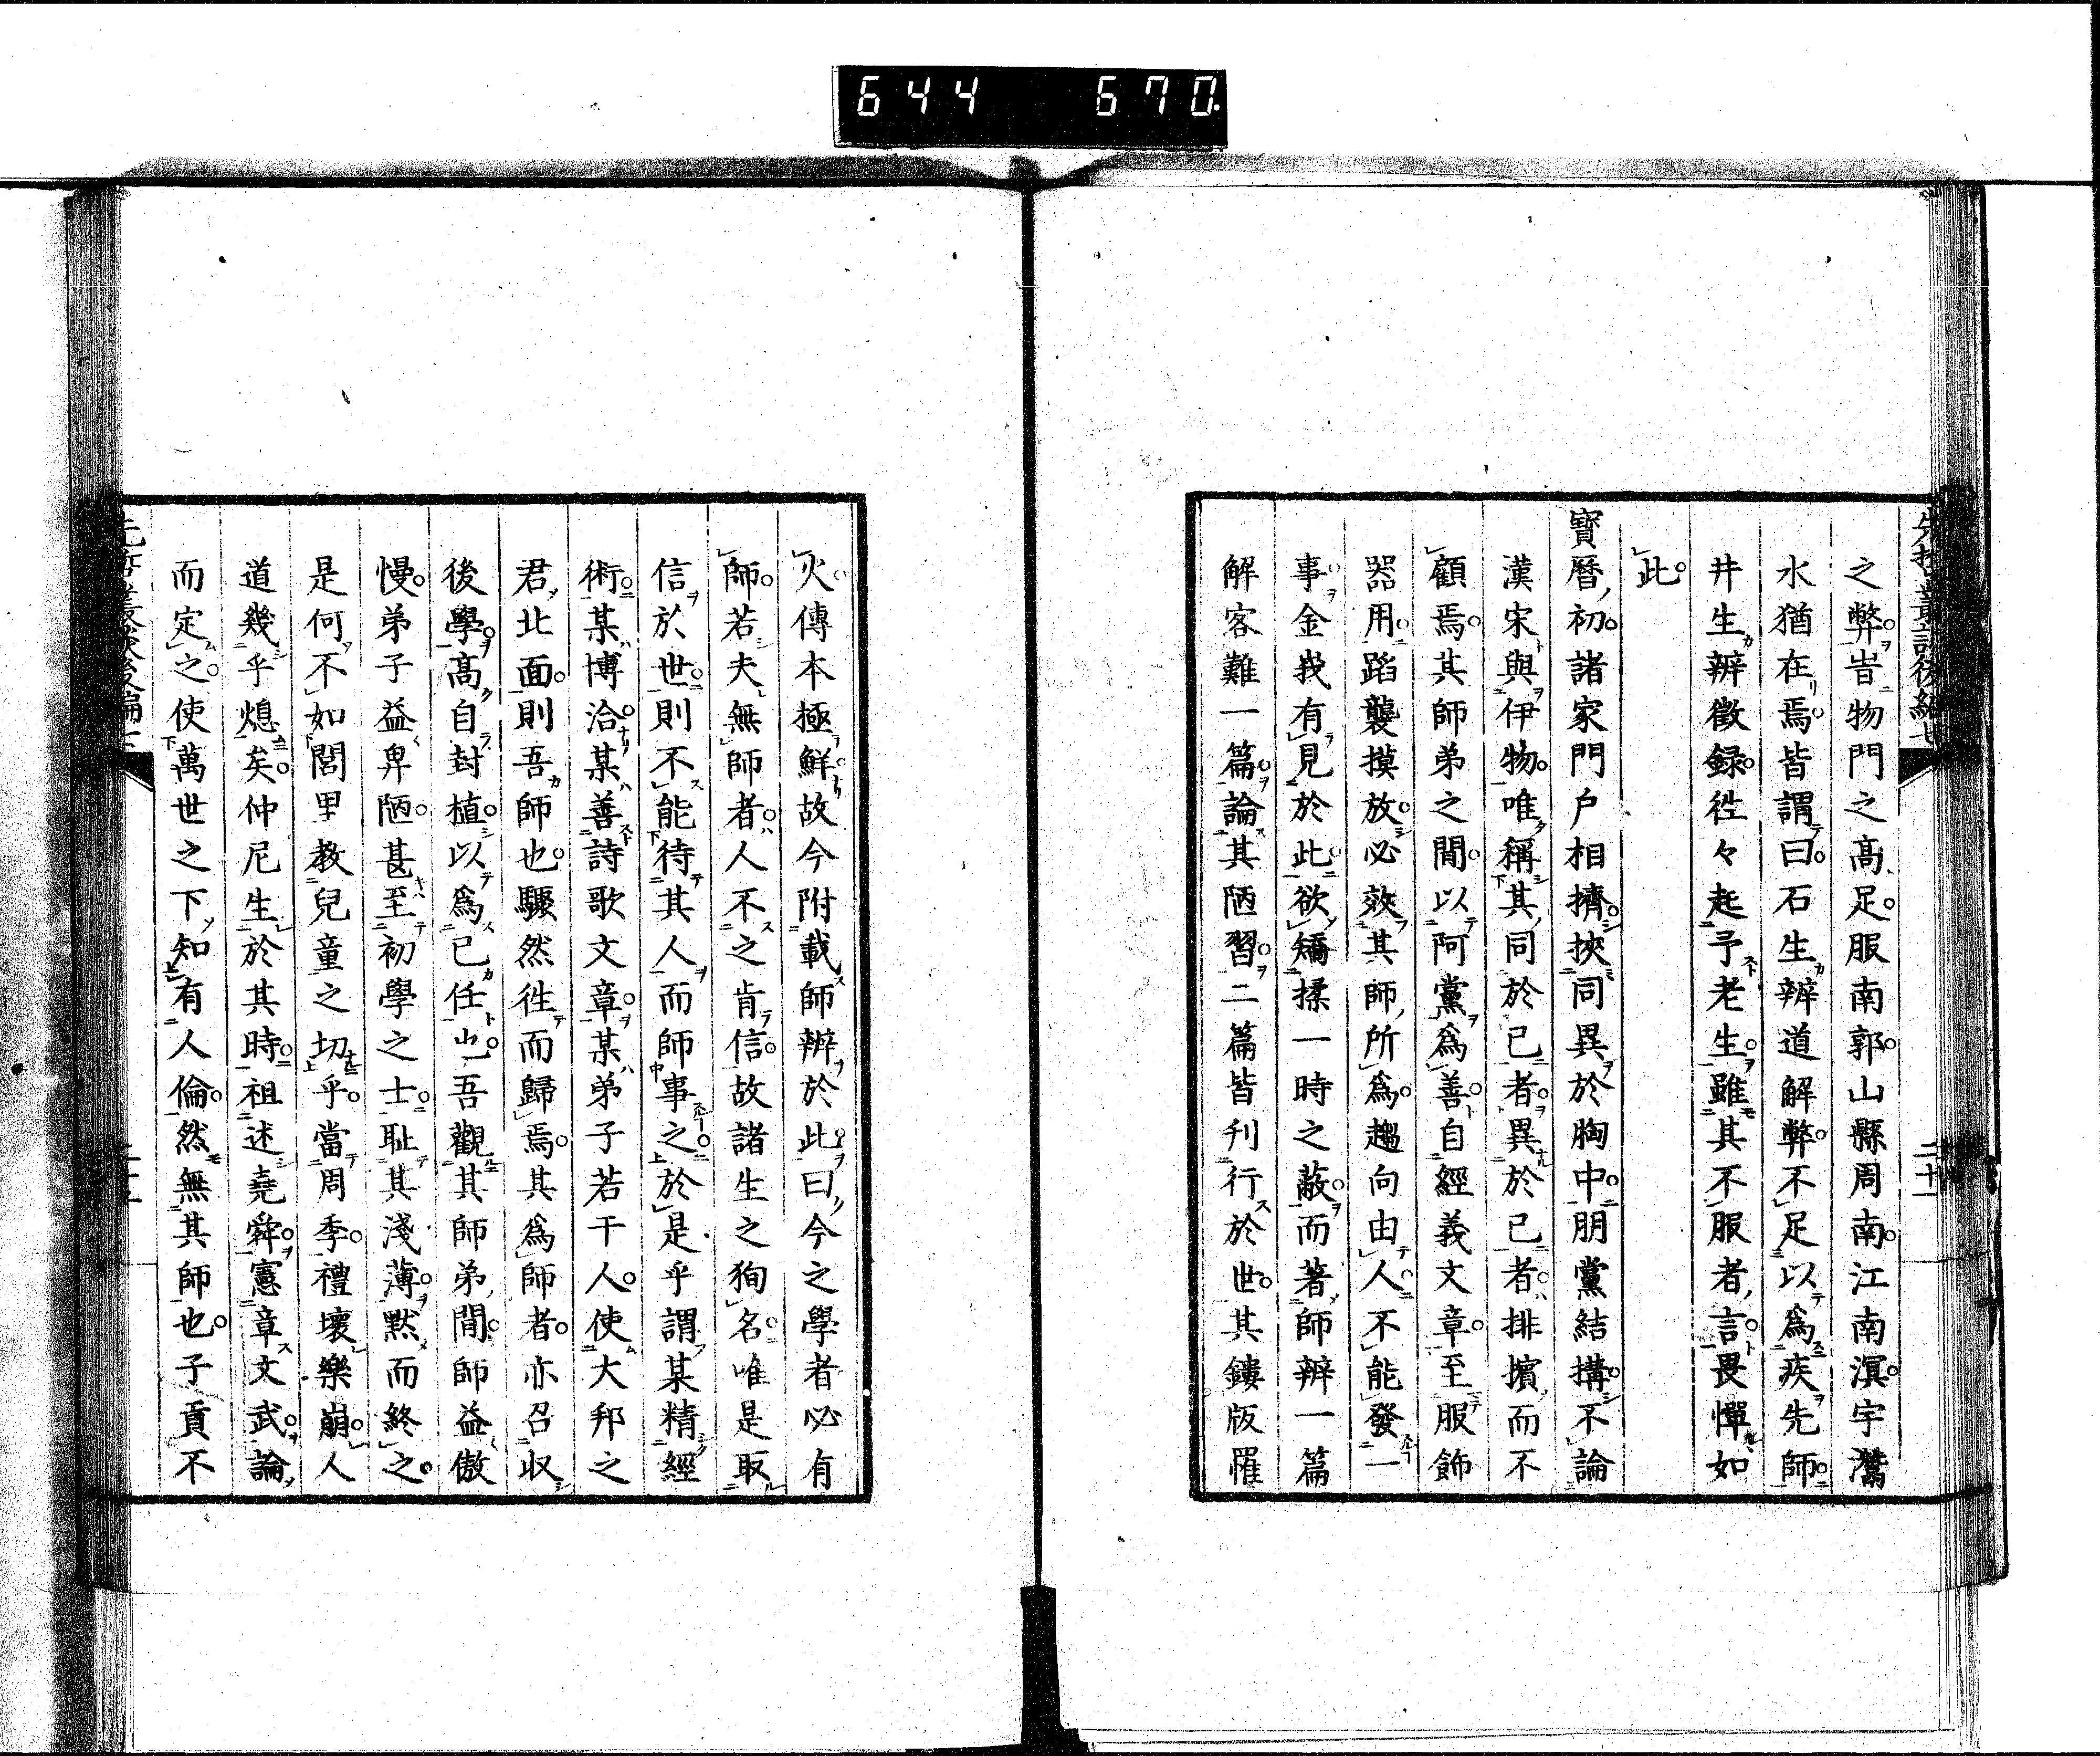 644 670.
之弊。旹物門之髙足。服南郭。山縣周南。江南溟。宇灊
水猶在焉。皆謂曰。石生辨道解弊。不足以爲疾先師。
井生辨徵録。徃々起予老生。雖其不服者。言畏憚如
此。
寳暦初。諸家門户相擠。挾同異於胸中。朋黨結搆。不論
漢宋與伊物。唯稱其同於己者。異於己者。排擯而不
顧焉。其師弟之間。以阿黨爲善。自經義文章。至服飾
器用。蹈襲摸放。必效其師所爲。趨向由人。不能發一
事。金我有見於此。欲矯揉一時之蔽。而著師辨一篇
解客難一篇。論其陋習。二篇皆刋行於世。其鏤版罹
火。傳本極鮮。故今附載師辨於此。曰今之學者必有
師。若夫無師者。人不之肯信。故諸生之狥名。唯是取
信於世。則不能待其人而師事之。於是乎謂某精經
術。某博洽。某善詩歌文章。某弟子若干人。使大邦之
君北面。則吾師也。驟然徃而歸焉。其爲師者。亦召収
後學。髙自封植。以爲己任也。吾觀其師弟間。師益傲
慢。弟子益卑陋。甚至初學之士。耻其淺薄。默而終之。
是何不如閭里教兒童之切乎。當周季。禮壞樂崩。人
道幾乎熄矣。仲尼生於其時。祖述堯舜。憲章文武。論
而定之。使萬世之下。知有人倫。然無其師也。子貢不